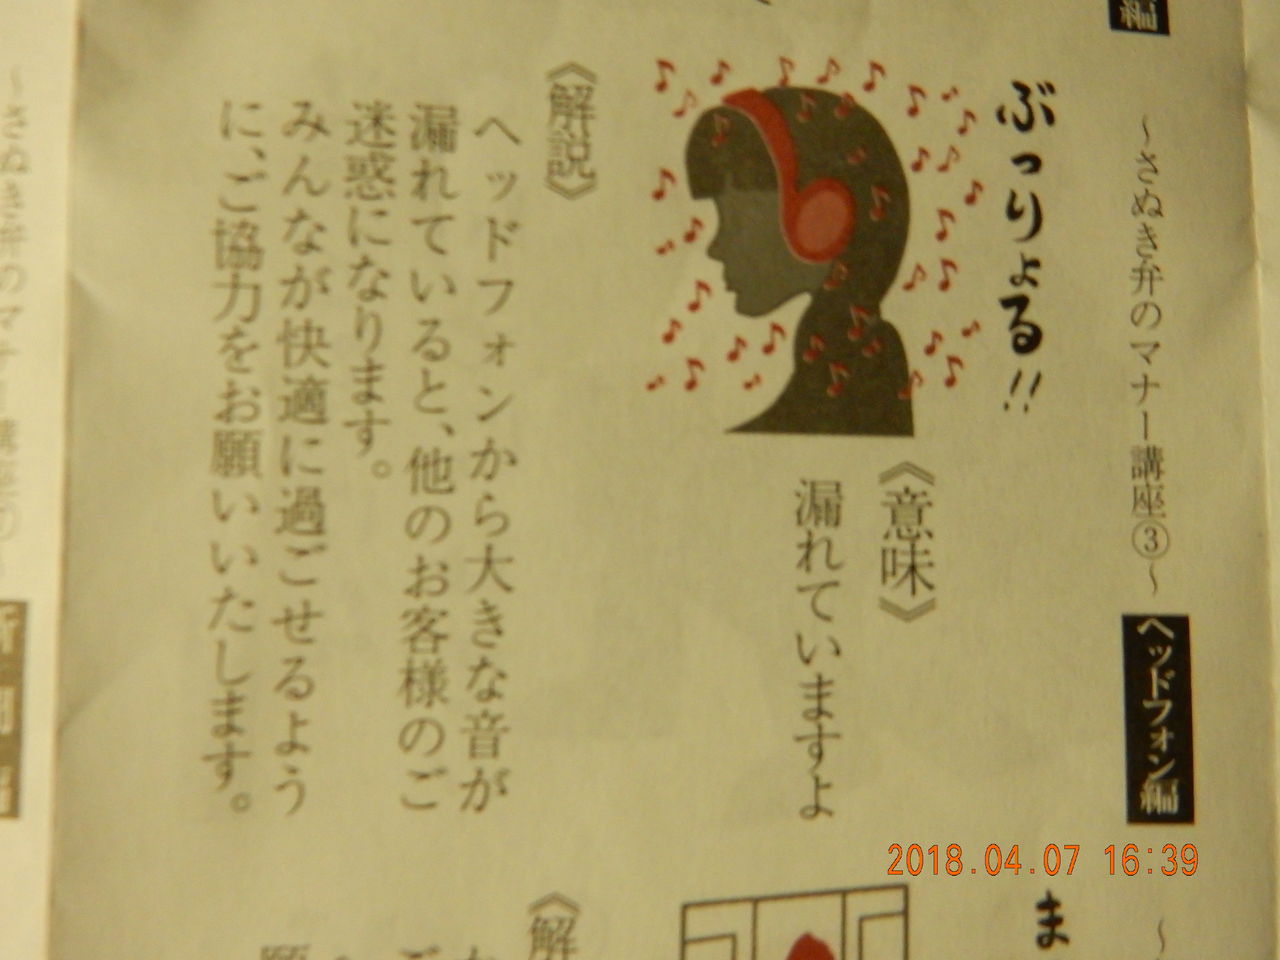 編
～さぬき弁のマナー講座③～
ヘッドフォン編
ぶっりょる!!
《意味》
漏れていますよ
《解説》
ヘッドフォンから大きな音が
漏れていると、他のお客様のご
迷惑になります。
みんなが快適に過ごせるよう
に、ご協力をお願いいたします。
～
ま
《解
～さぬき弁のマナー講座①～
2018.04.07 16:39